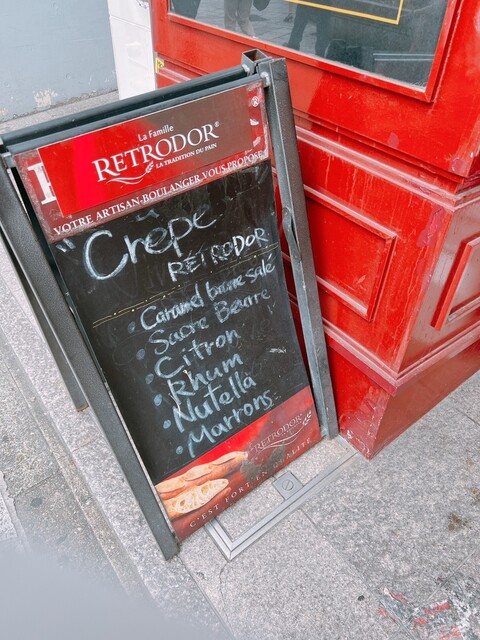 La Famille
RETRODOR®
& LA TRADITION DU PAIN
VOTRE ARTISAN-BOULANGER VOUS PROPOSE
"Crêpe
RETRODOR
• Caramel beurre salé
• Sucre Beurre
• Citron
• Rhum
• Nutella
• Marrons
RETRODOR
C'EST FORT EN QUALITÉ